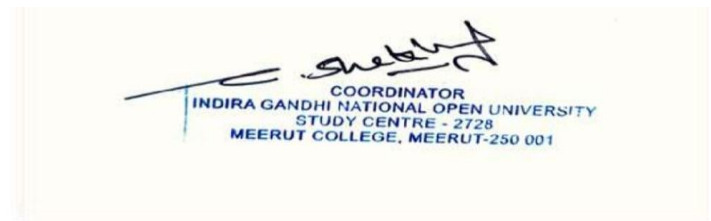 COORDINATOR
INDIRA GANDHI NATIONAL OPEN UNIVERSITY
STUDY CENTRE - 2728
MEERUT COLLEGE, MEERUT-250 001